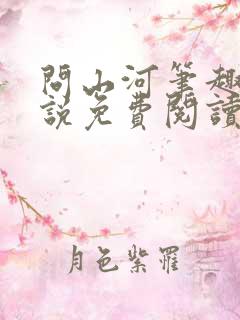 問山河筆趣
說免費閱讀
月色紫羅